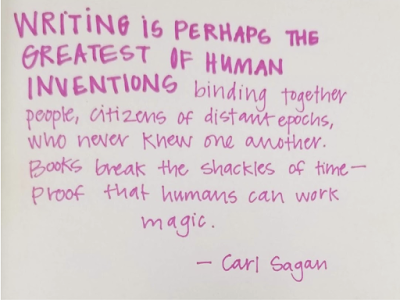 WRITING IS PERHAPS THE
GREATEST OF HUMAN
INVENTIONS binding together
people, citizens of distant epochs,
who never knew one another.
Books break the shackles of time—
proof that humans can work
magic.
— Carl Sagan